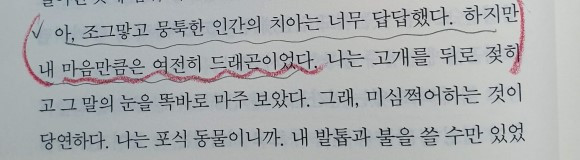 아, 조그맣고 뭉툭한 인간의 치아는 너무 답답했다. 하지만
내 마음만큼은 여전히 드래곤이었다. 나는 고개를 뒤로 젖히
고 그 말의 눈을 똑바로 마주 보았다. 그래, 미심쩍어하는 것이
당연하다. 나는 포식 동물이니까. 내 발톱과 불을 쓸 수만 있었